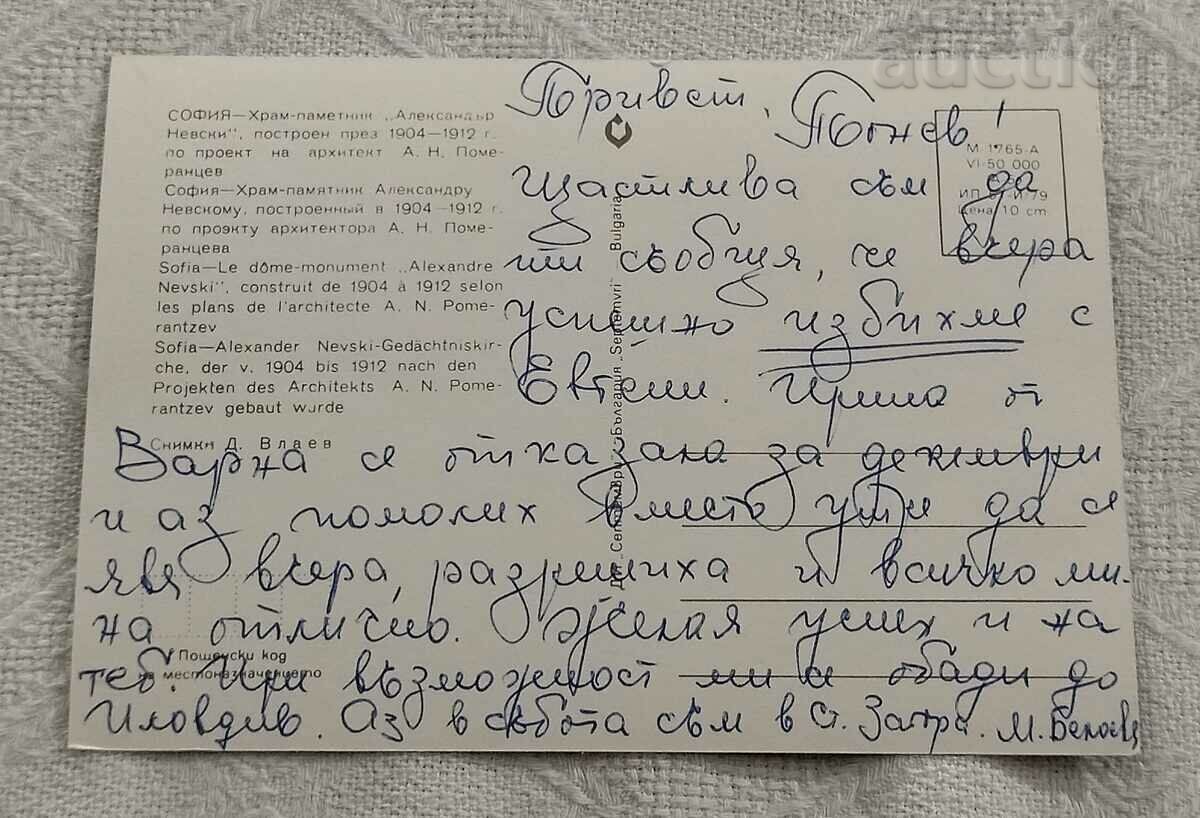 auctio
СОФИЯ—Храм-паметник „Александър
Невски", построен през 1904—1912 г.
по проект на архитект А. Н. Поме-
ранцев
София—Храм-памятник Александру
Невскому, построенный в 1904—1912 г.
по проэкту архитектора А. Н. Поме-
ранцева
Sofia—Le dôme-monument „Alexandre
Nevski", construit de 1904 à 1912 selon
les plans de l'architecte A. N. Pome-
rantzev
Sofia—Alexander Nevski-Gedächtniskir-
che, der v. 1904 bis 1912 nach den
Projekten des Architekts A. N. Pome-
rantzev gebaut wurde
Снимки Д. Влаев
ДП „Септември" България „Septemvri" Bulgaria
М-1765-А
VI-50 000
ИП 79
Цена 10 cm
Пощенски код
на местоназначението
Привет,
Щастлива съм да
ти съобщя, че вчера
успешно избихме с
Евгени. Ирина от
Варна се отказала за декември
и аз помолих вместо утре да се
явя вчера, разрешиха и всичко ми-
на отлично. Желая успех и на
теб. При възможност ми се обади до
Пловдив. Аз в събота съм в Ст. Загора. М.